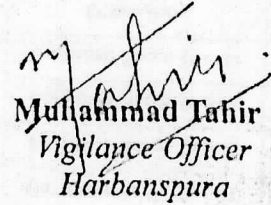 M Tahir
Muhammad Tahir
Vigilance Officer
Harbanspura